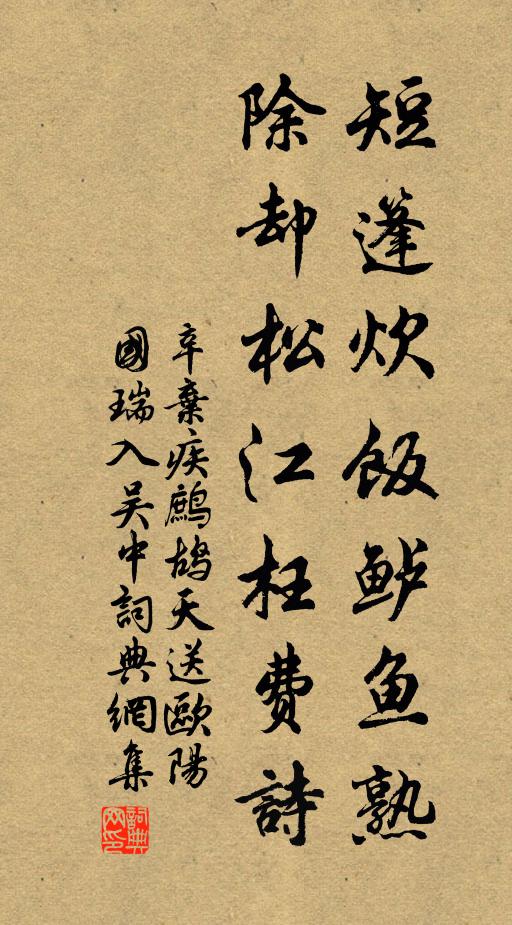 短蓬炊饭鲈鱼熟
除却松江枉费詩
辛棄疾鷓鴣天送歐陽
國瑞入吴中詞典網集
詞典网印